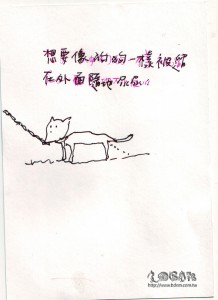 想要像狗狗一樣被蹓
在外面隨地尿尿
http://www.bdsm.com.tw